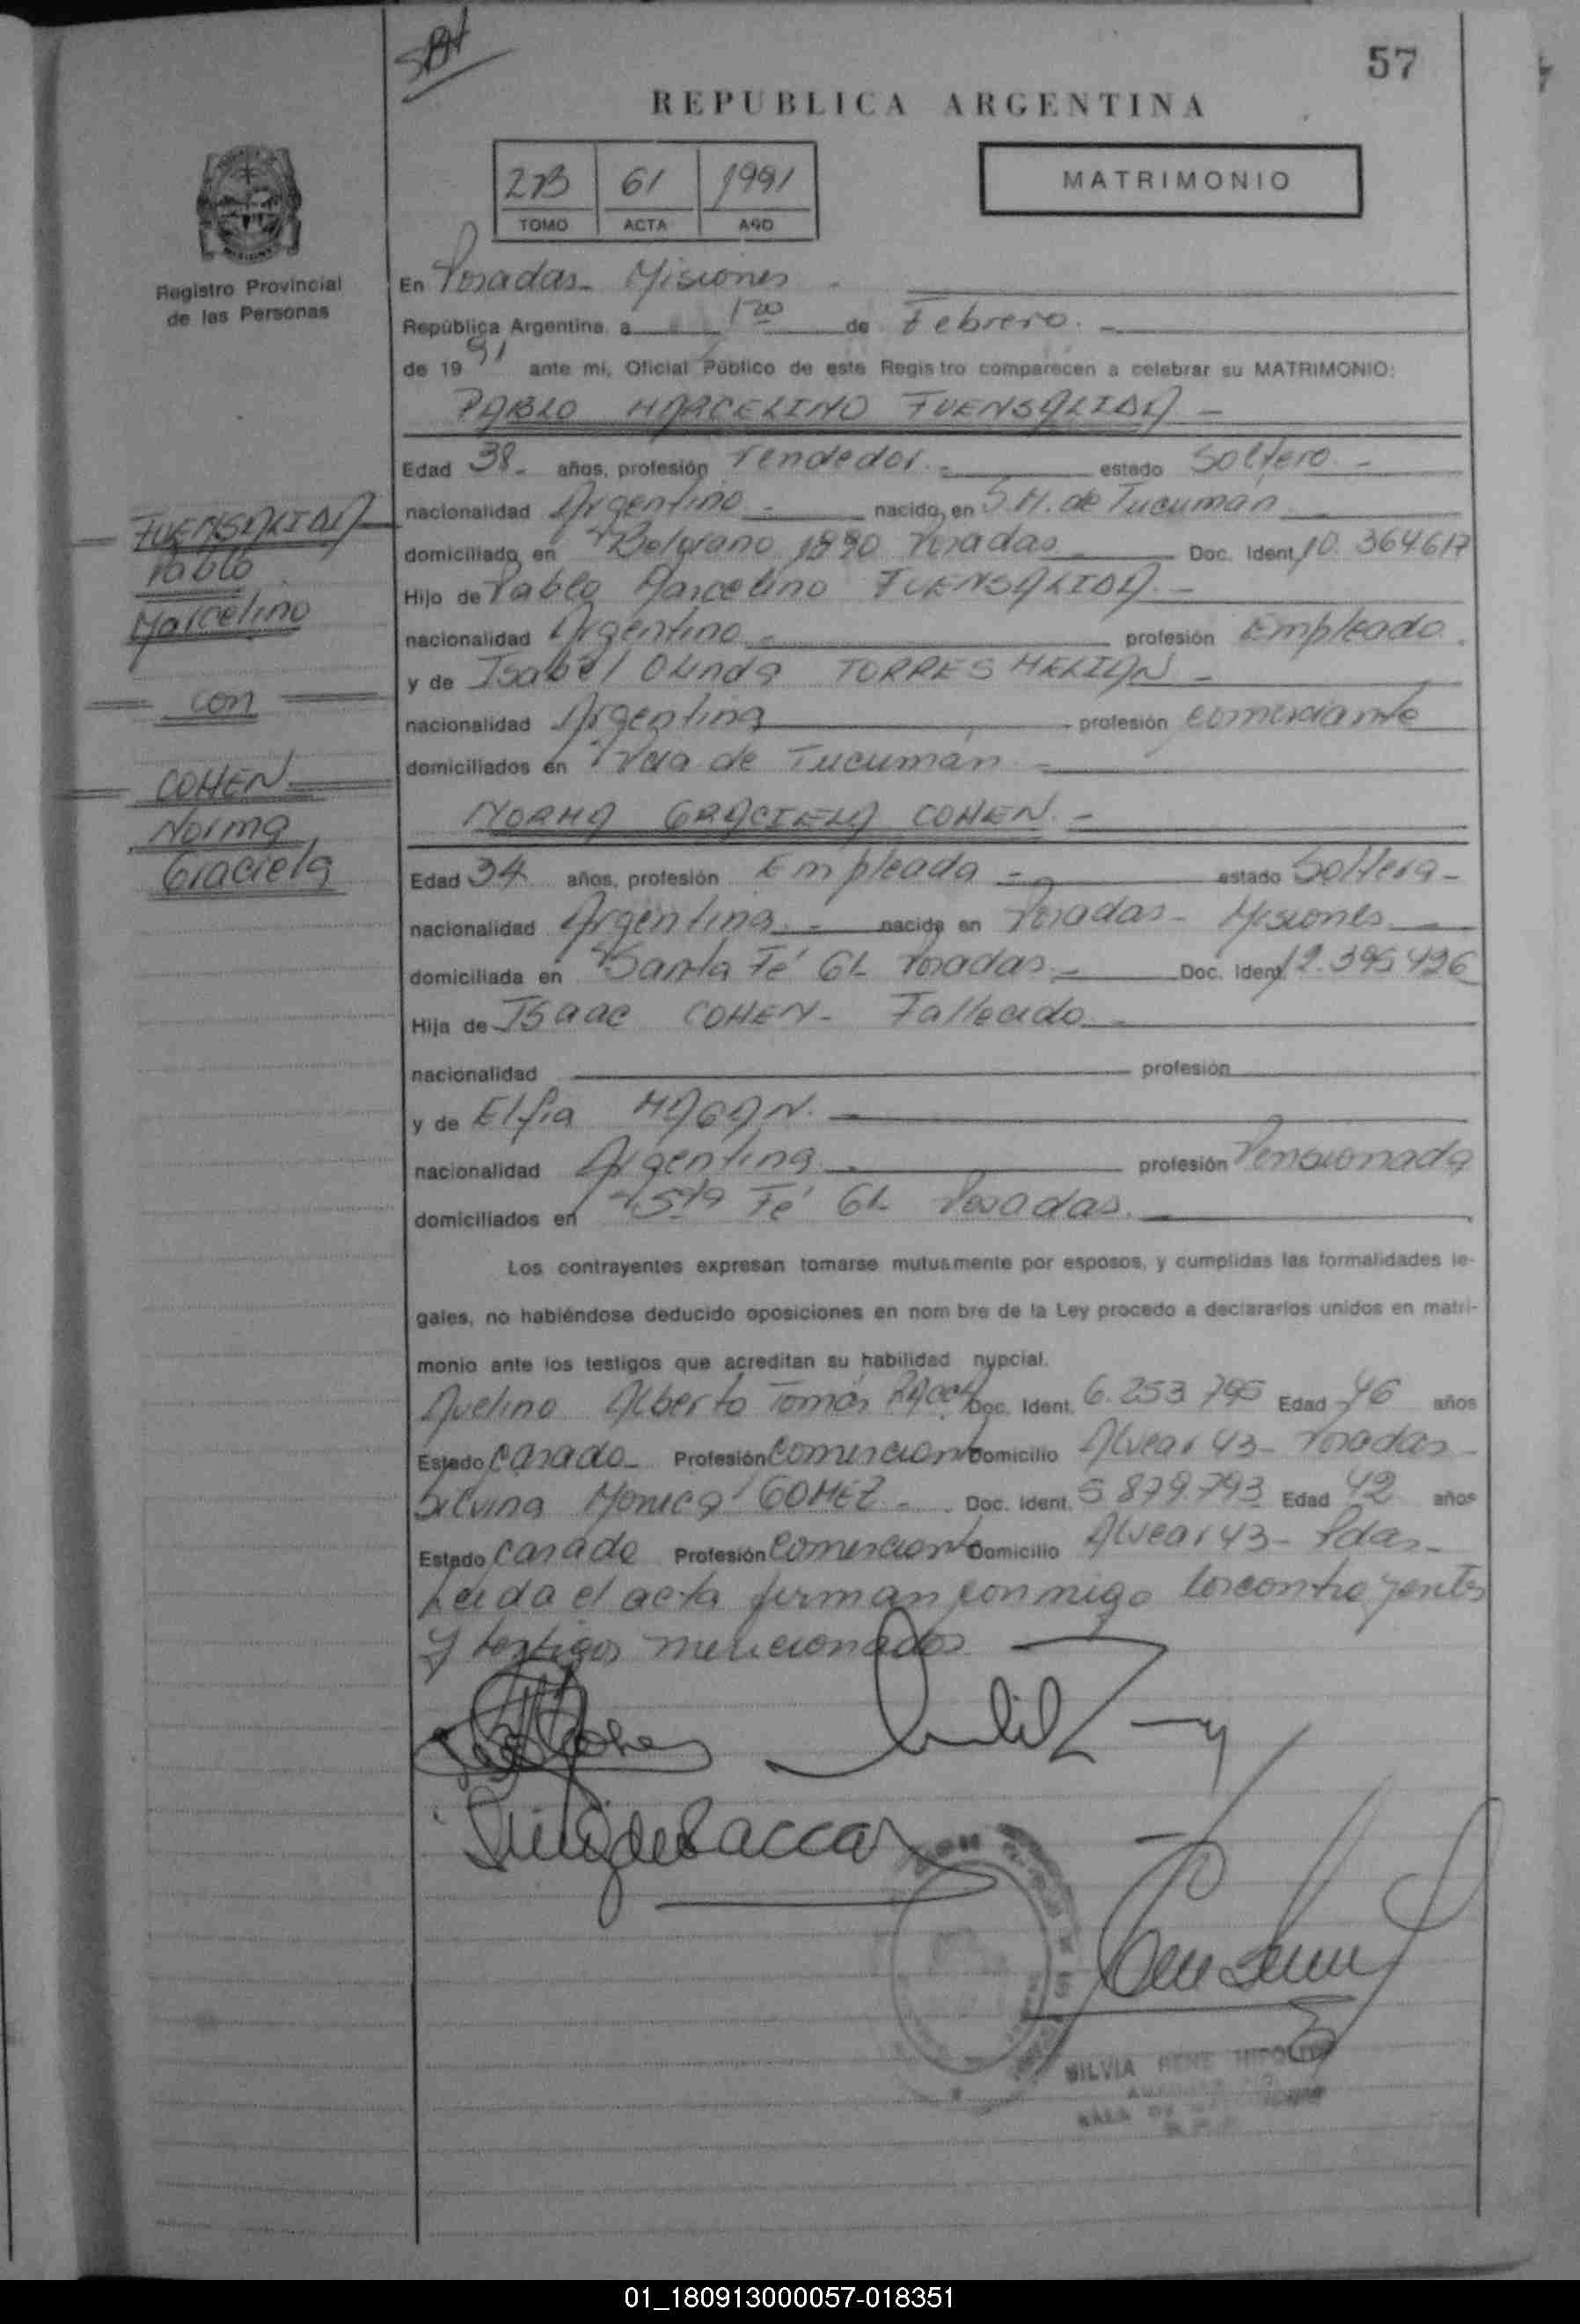 57
REPUBLICA ARGENTINA
61 1991
TOMO ACTA AÑO
MATRIMONIO
Registro Provincial
de las Personas
En Posadas - Misiones
República Argentina, a 1ro de Febrero. -
de 1991 ante mí, Oficial Público de este Registro comparecen a celebrar su MATRIMONIO:
PABLO MARCELINO FUENSALIDA -
Edad 38 - años, profesión Vendedor. - estado Soltero. -
nacionalidad Argentino - nacido en S.M. de Tucumán
domiciliado en Belgrano 1890 Posadas Doc. Ident. 10.364.617
Hijo de Pablo Marcelino FUENSALIDA. -
nacionalidad Argentino - profesión Empleado.
y de Isabel Olinda TORRES MELIAN -
nacionalidad Argentina profesión comerciante
domiciliados en Pcia de Tucumán -
FUENSALIDA
Pablo
Marcelino
con
COHEN
Norma
Graciela
NORMA GRACIELA COHEN. -
Edad 34 años, profesión Empleada - estado Soltera -
nacionalidad Argentina. - nacida en Posadas - Misiones
domiciliada en Santa Fé 62 Posadas. - Doc. Ident. 12.395.426
Hija de ISaac COHEN - Fallecido -
nacionalidad profesión
y de Elfia MAGAN. -
nacionalidad Argentina - profesión Pensionada
domiciliados en Sta Fé 62 Posadas.
Los contrayentes expresan tomarse mutuamente por esposos, y cumplidas las formalidades le-
gales, no habiéndose deducido oposiciones en nom bre de la Ley procedo a declararlos unidos en matri-
monio ante los testigos que acreditan su habilidad nupcial.
Avelino Alberto Tomás Doc. Ident. 6.253.795 Edad 46 años
Estado casado - Profesión comerciante Domicilio Alvear 43 - Posadas -
Silvina Monica GOMEZ - Doc. Ident. 5.879.793 Edad 42 años
Estado casado Profesión comerciante Domicilio Alvear 43 - Pdas -
Leida el acta firman conmigo los contrayentes
y testigos mencionados
SILVIA RENE HIPOLITO
01_180913000057-018351